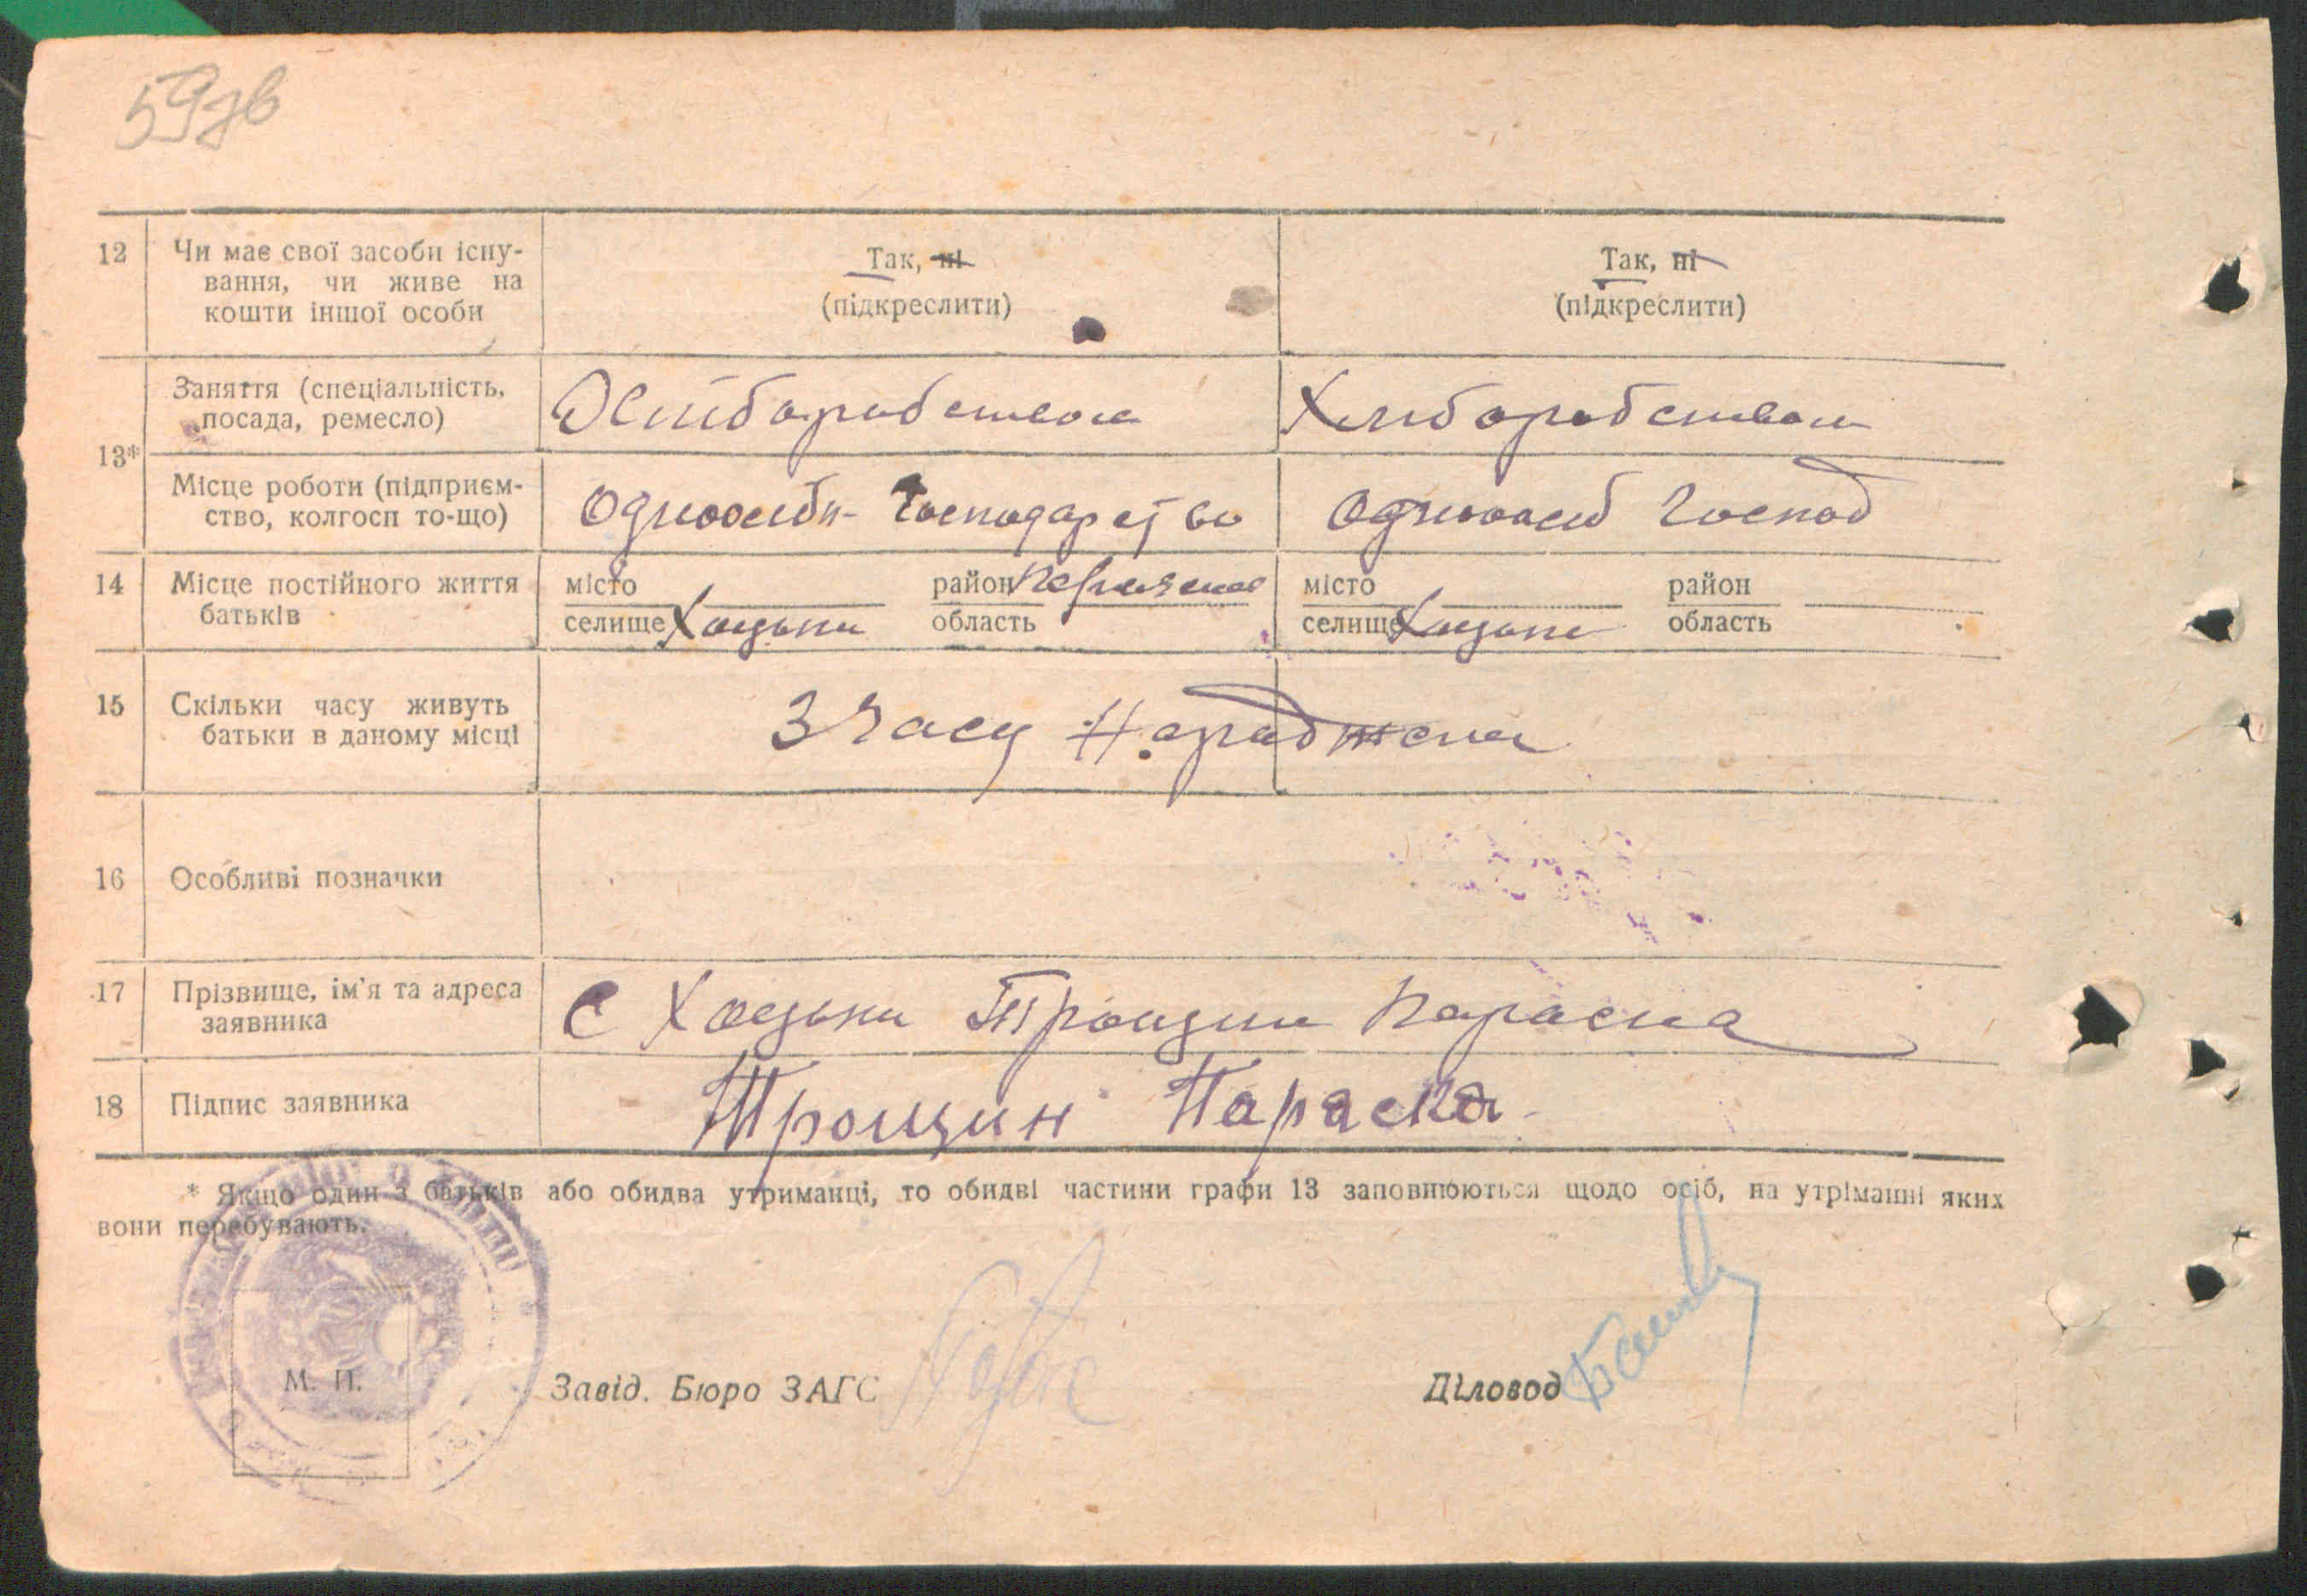 59зв
12 Чи має свої засоби існу-
вання, чи живе на
кошти іншої особи
Так, ні
(підкреслити)
Так, ні
(підкреслити)
13*
Заняття (спеціальність,
посада, ремесло)
Хліборобством
Хліборобством
Місце роботи (підприєм-
ство, колгосп то-що)
Одноосібн- Господарство
Одноосіб Господ
14 Місце постійного життя
батьків
місто
селище Хоцьки
район
область
місто
селище Хоцьки
район
область
15 Скільки часу живуть
батьки в даному місці
З часу Народження
16 Особливі позначки
17 Прізвище, ім'я та адреса
заявника
С Хоцьки Трощин Параска
18 Підпис заявника
Трощин Параска
* Якщо один з батьків або обидва утриманці, то обидві частини графи 13 заповнюються щодо осіб, на утріманні яких
вони перебувають.
М. П.
Завід. Бюро ЗАГС
Діловод